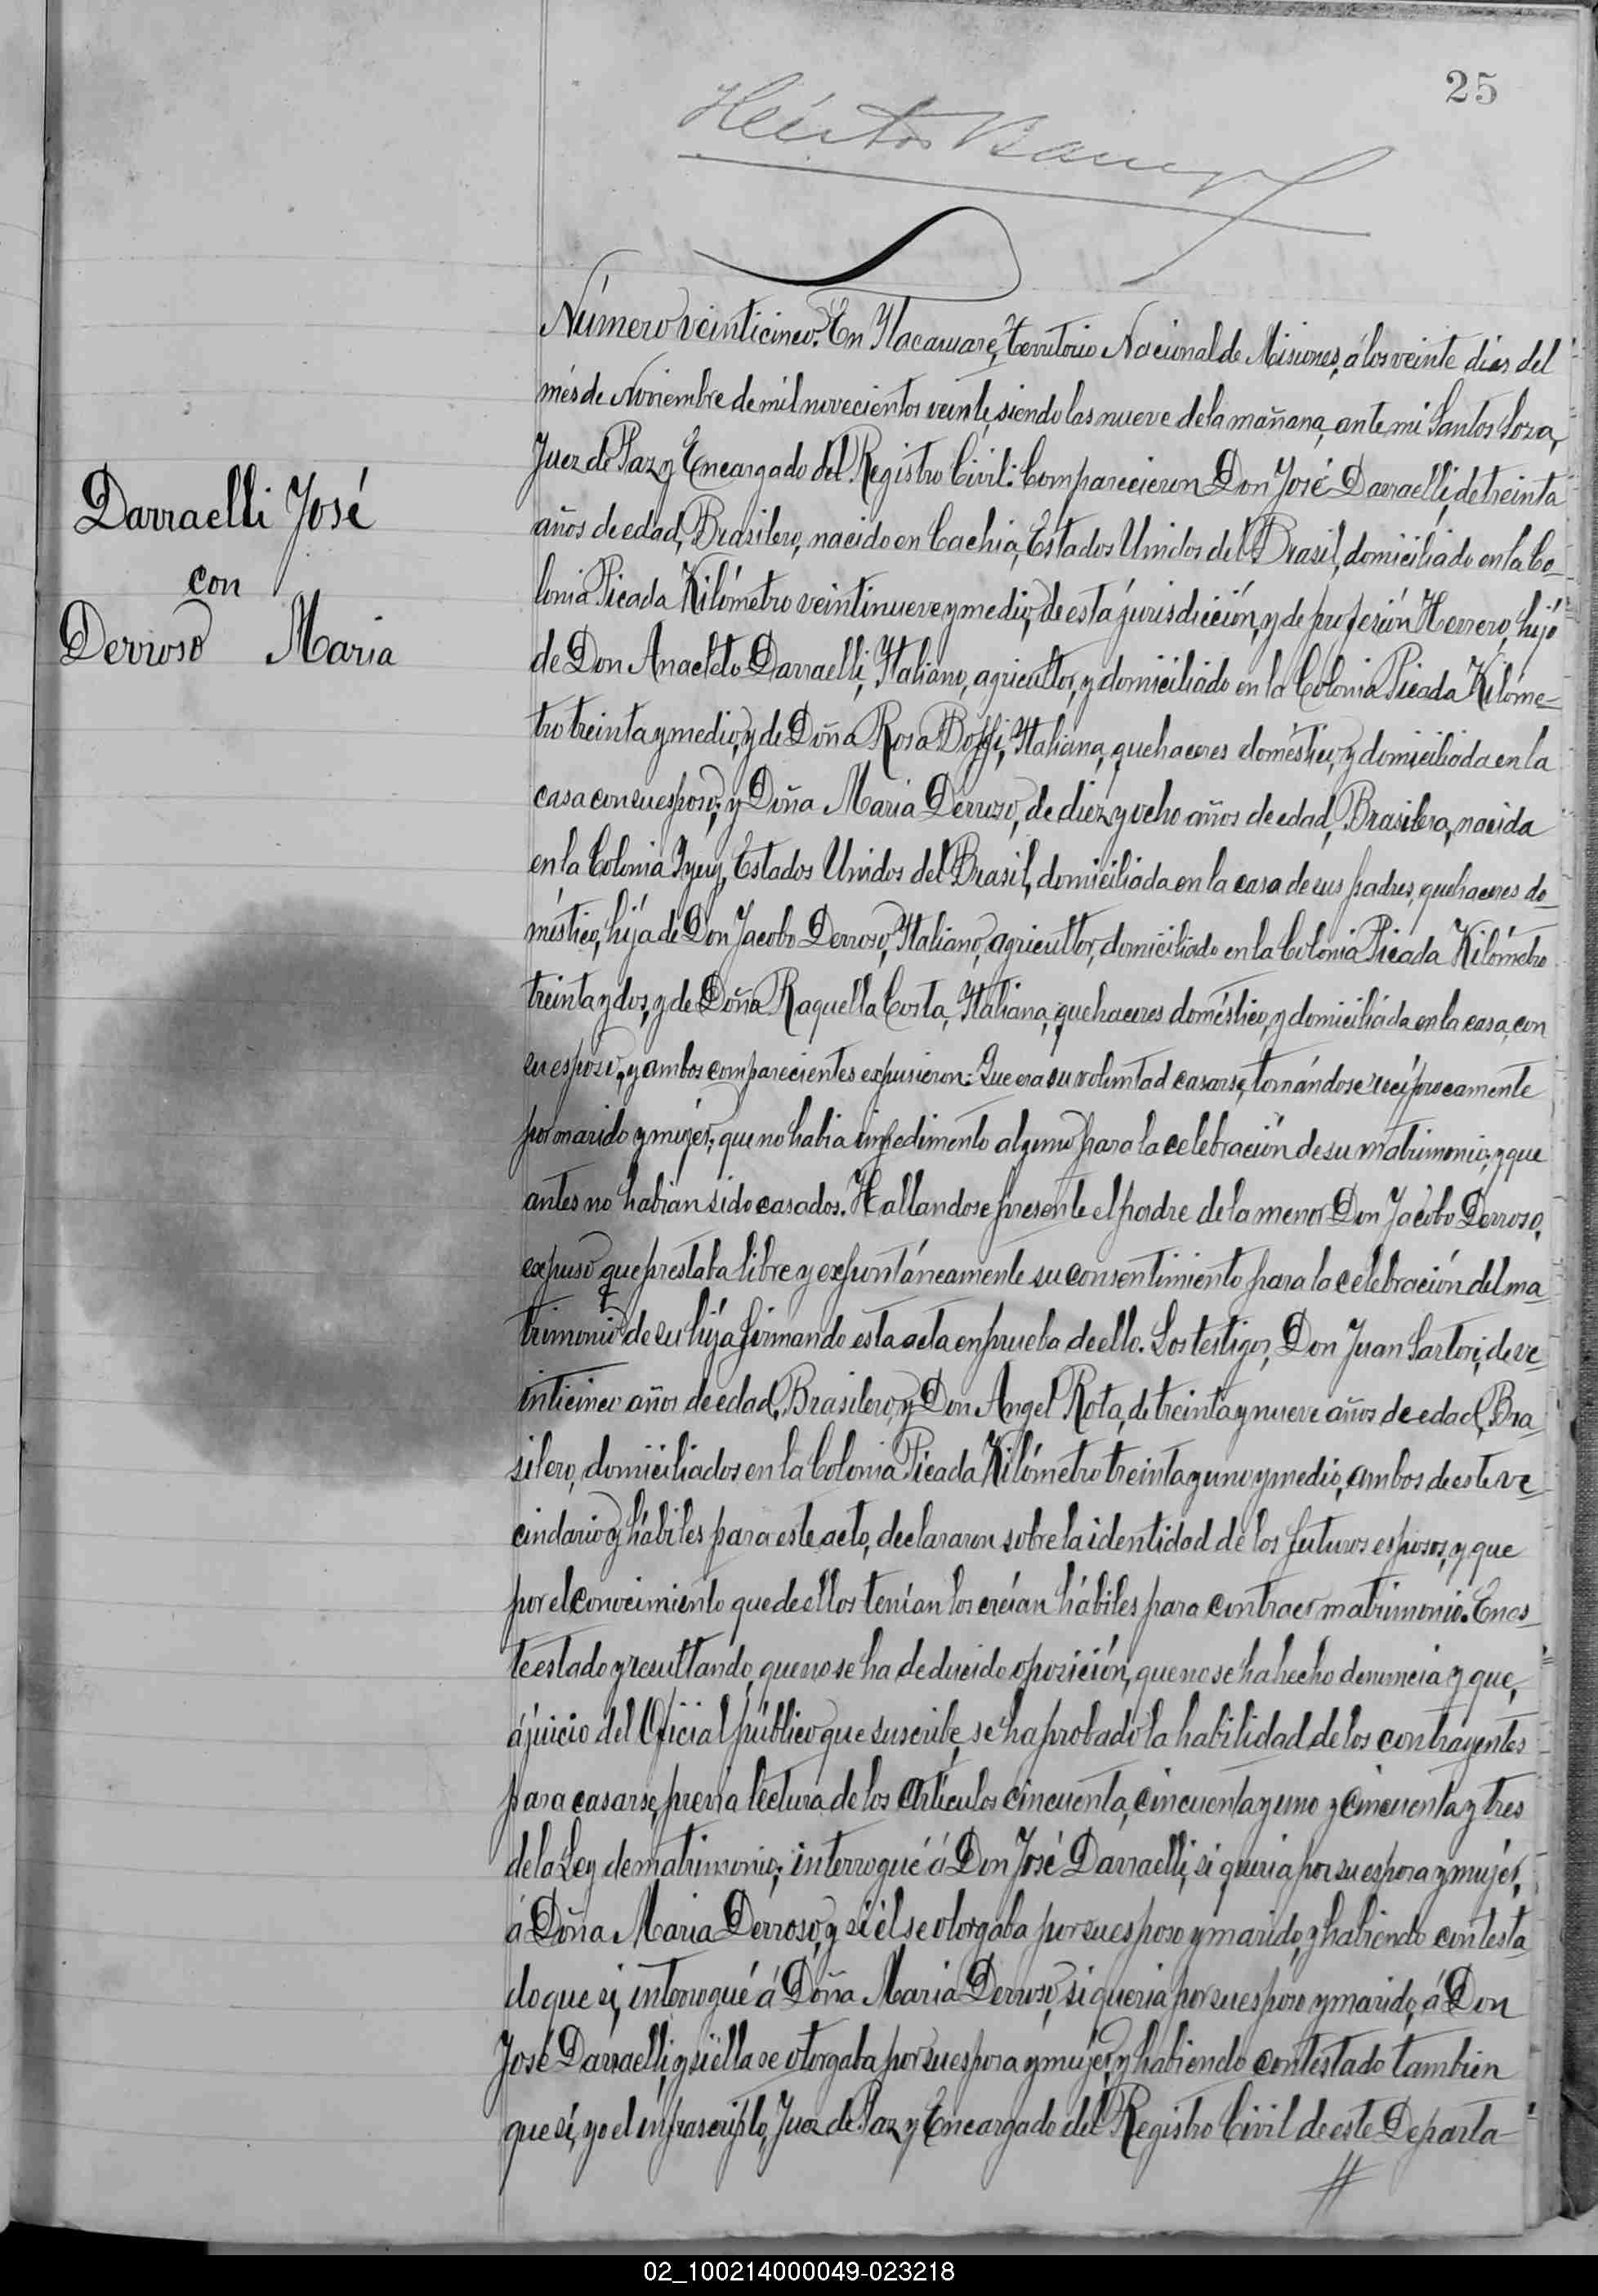 25
Héctor
Número veinticinco. En Itacaruaré, Territorio Nacional de Misiones, á los veinte dias del
més de Noviembre de mil novecientos veinte, siendo las nueve de la mañana, ante mi Santos Loza,
Juez de Paz y Encargado del Registro Civil: Comparecieron Don José Darraelli, de treinta
Darraelli José
años de edad, Brasilero, nacido en Cachia, Estados Unidos del Brasil, domiciliado en la Co-
con
lonia Picada Kilómetro veintinueve y medio, de esta jurisdicción, y de profesión Herrero, hijo
Derroso Maria
de Don Anacleto Darraelli, Italiano, agricultor, y domiciliado en la Colonia Picada Kilóme-
tro treinta y medio, y de Doña Rosa Italiana, quehaceres doméstico, y domiciliada en la
casa con su esposo; y Doña Maria Derroso, de diez y ocho años de edad, Brasilera, nacida
en la Colonia Estados Unidos del Brasil, domiciliada en la casa de sus padres, quehaceres do-
méstico, hija de Don Jacobo Derroso, Italiano, agricultor, domiciliado en la Colonia Picada Kilómetro
treinta y dos, y de Doña Raquella Costa, Italiana, quehaceres doméstico, y domiciliada en la casa, con
su esposo, y ambos comparecientes expusieron: Que era su voluntad casarse, tomándose recíprocamente
por marido y mujér; que no habia impedimento alguno para la celebración de su matrimonio; y que
antes no habian sido casados. Hallandose presente el padre de la menor Don Jacobo Derroso,
expuso que prestaba libre y expontáneamente su consentimiento para la celebración del ma-
trimonio de su hija firmando esta acta en prueba de ello. Los testigos, Don Juan Sartori, de ve-
inticinco años de edad, Brasilero, y Don Angel Rota, de treinta y nueve años de edad, Bra-
silero, domiciliados en la Colonia Picada Kilómetro treinta y uno y medio, ambos de este ve-
cindario y hábiles para este acto, declararon sobre la identidad de los futuros esposos, y que
por el conocimiento que de ellos tenían los creían hábiles para contraer matrimonio. En es-
te estado y resultando, que no se ha deducido oposición, que no se ha hecho denuncia y que,
á juicio del Oficial público que suscribe, se ha probado la habilidad de los contrayentes
para casarse, previa lectura de los Artículos cincuenta, cincuenta y uno y cincuenta y tres
de la Ley de matrimonio; interrogué á Don José Darraelli, si queria por su esposa y mujér,
á Doña Maria Derroso, y si él se otorgaba por su esposo y marido, y habiendo contesta-
do que si, interrogué á Doña Maria Derroso, si queria por su esposo y marido, á Don
José Darraelli, y si ella se otorgaba por su esposa y mujér, y habiendo contestado tambien
que sí, yo el infrascripto, Juez de Paz y Encargado del Registro Civil de este Departa-
//
02_100214000049-023218